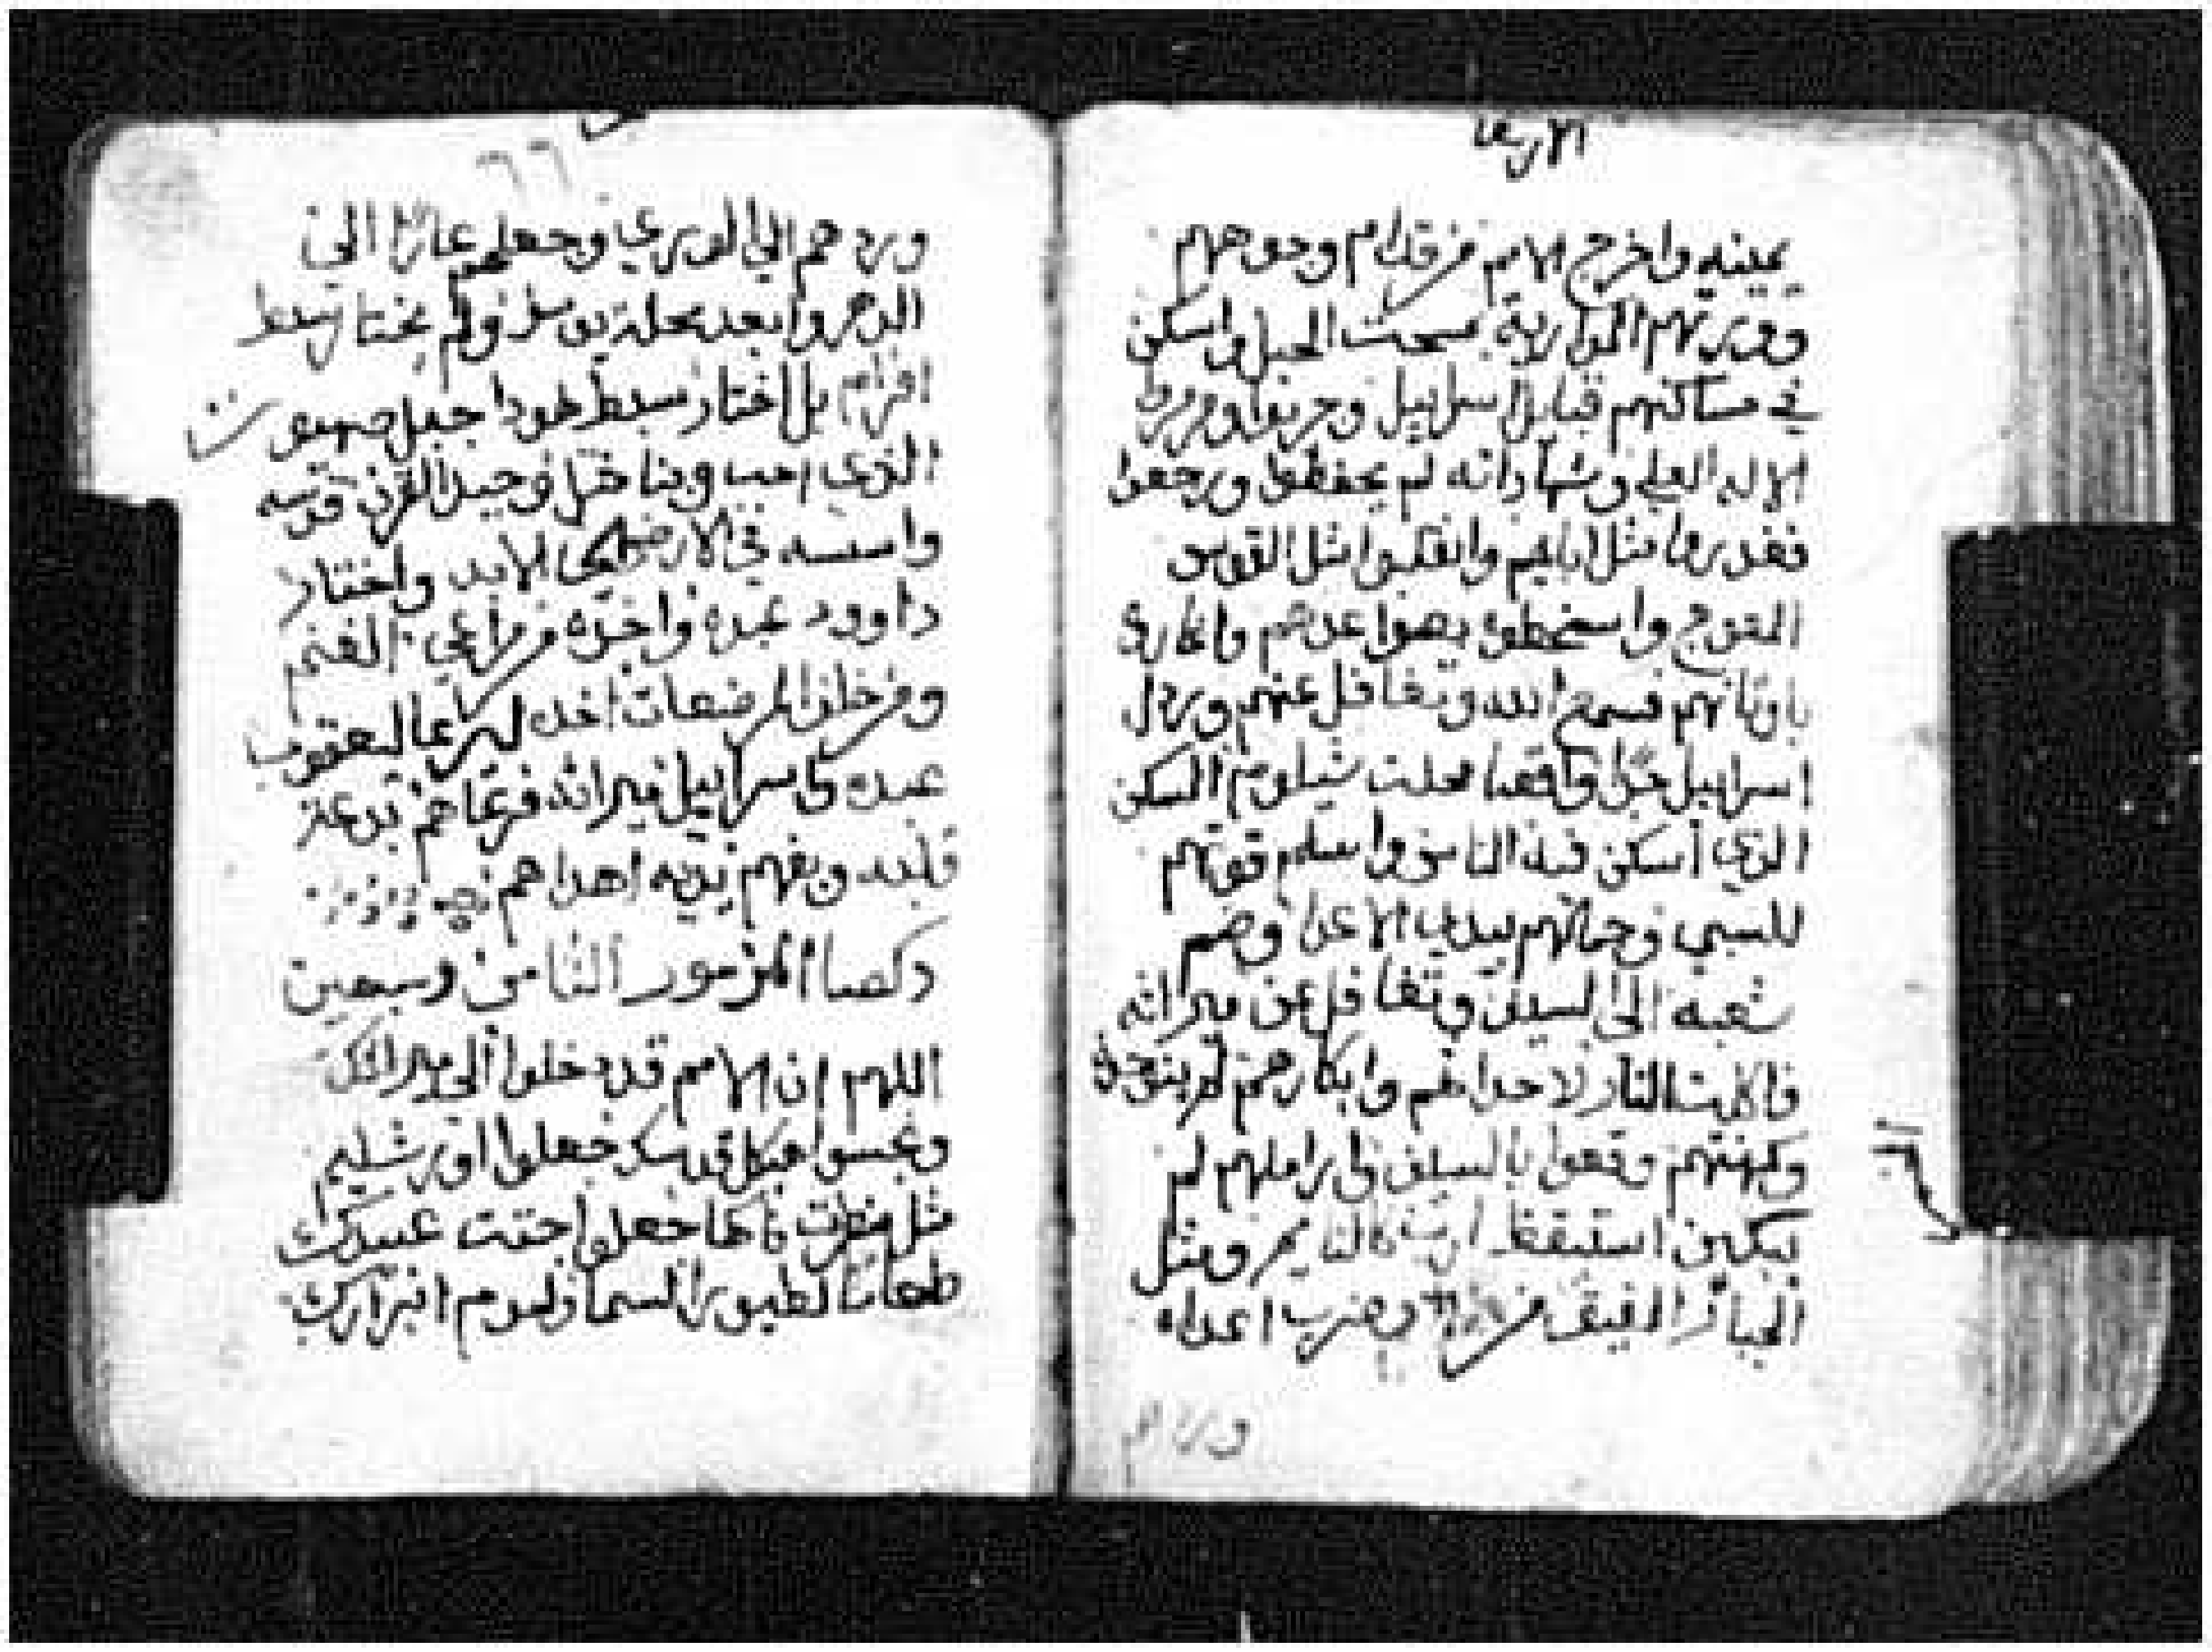 الاربعا
يمينه واخرج الامم من قدام وجوههم
وورتهم المواريه بمسحت الحبل واسكن
في مساكنهم قبايل اسراييل وجربوا ومرمروا
الاله العلي وشهاداته لم يحفظوا ورجعوا
فغدروا مثل ابايهم وانقلبوا مثل القوس
المعوج واسخطوه بصوا عدهم واغاروه
باوثانهم فسمع الله وتغافل عنهم وردل
اسراييل جدا واقصا محلت شيلوم المسكن
الذي اسكن فيه الناس واسلم قوتهم
للسبي وجمالهم بيدي الاعدا وضم
شعبه الى السيف وتغافل عن ميراثه
فاكلت النار لاحداثهم وابكارهم لم ينوحوا
وكهنتهم وقعوا بالسيف واراملهم لم
يبكين استيقظ الرب كالنايم ومثل
الجبار المفيق من وضرب اعداه
ورداهم
٦٦
وردهم الي الوري وجعلهم عارا الي
الدهر وابعد محلة يوسف ولم يختار سبط
افرام بل اختار سبط يهودا جبل صهيون
الذي احب وبنا مثل وحيد القرن قدسه
واسسه في الارض الي الابد واختار
داوود عبده واخذه من مراعي الغنم
ومن خلف المرضعات اخده ليرعا ليعقوب
عبده واسراييل ميراثه فرعاهم بدعة
قلبه وبفهم يديه اهداهم
المزمور الثامن وسبعين
اللهم ان الامم قد دخلوا الي ميراثك
ونجسوا هيكل قدسك جعلوا اورشليم
مثل منطرت فاكها جعلوا جتت عبيدك
طعاما لطيور السما ولحوم ابرارك